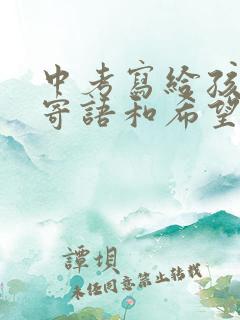 中考寫給孩
寄語和希望
譚坝
未任同意禁止转载